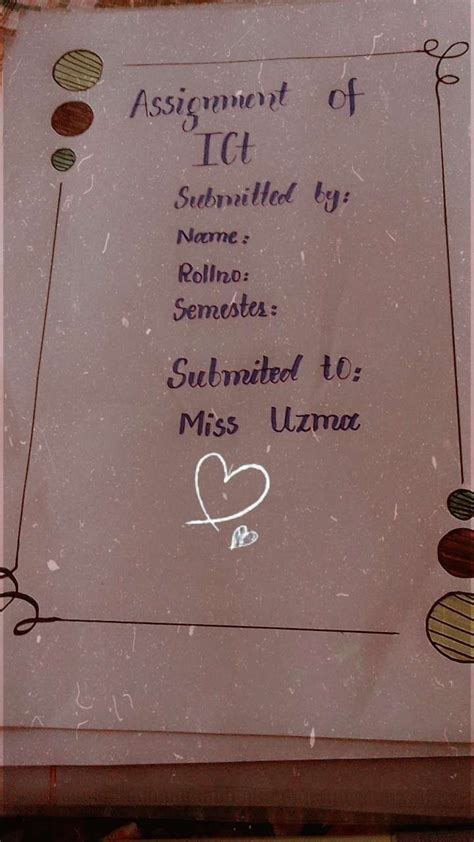 Assignment of
ICt
Submitted by:
Name:
Rollno:
Semester:
Submited to:
Miss Uzma